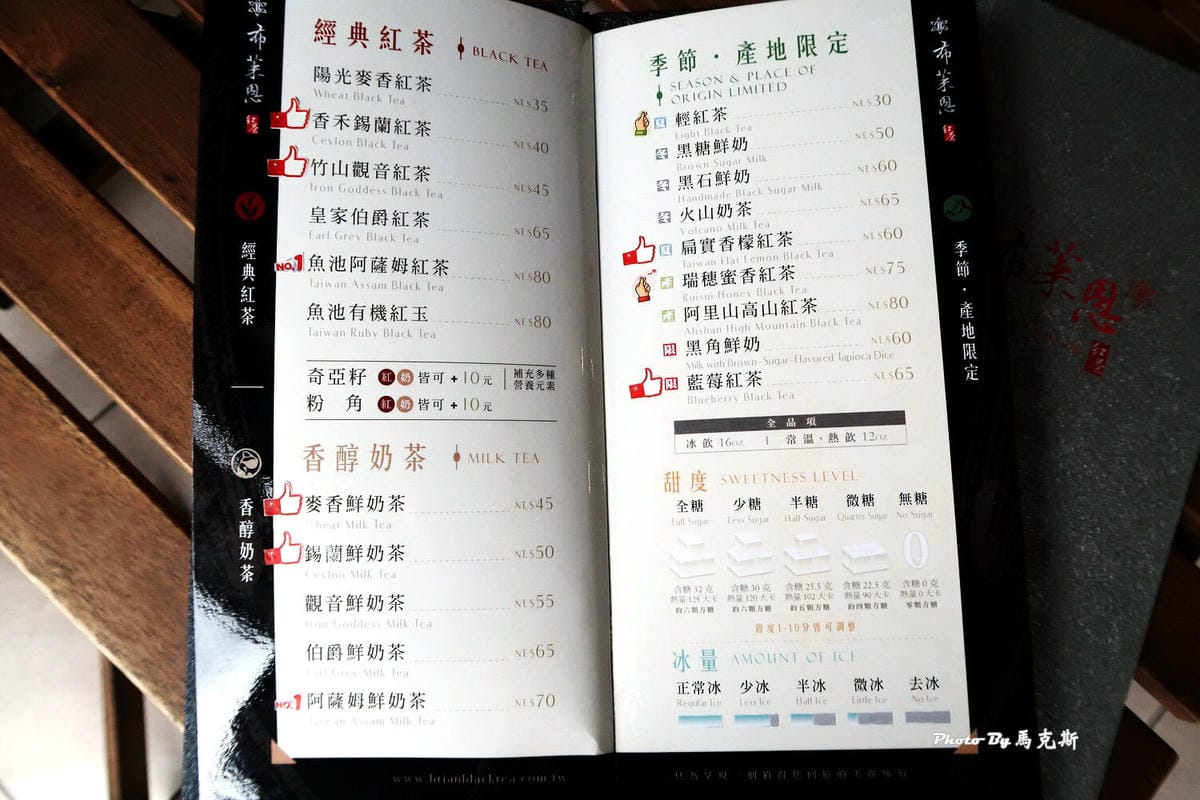 布萊恩
紅茶
經典紅茶
香醇奶茶
經典紅茶 BLACK TEA
陽光麥香紅茶 NT.$35
Wheat Black Tea
香禾錫蘭紅茶 NT.$40
Ceylon Black Tea
竹山觀音紅茶 NT.$45
Iron Goddess Black Tea
皇家伯爵紅茶 NT.$65
Earl Grey Black Tea
NO.1 魚池阿薩姆紅茶 NT.$80
Taiwan Assam Black Tea
魚池有機紅玉 NT.$80
Taiwan Ruby Black Tea
奇亞籽 紅 奶 皆可 + 10元 補充多種
營養元素
粉 角 紅 奶 皆可 + 10元
香醇奶茶 MILK TEA
麥香鮮奶茶 NT.$45
Wheat Milk Tea
錫蘭鮮奶茶 NT.$50
Ceylon Milk Tea
觀音鮮奶茶 NT.$55
Iron Goddess Milk Tea
伯爵鮮奶茶 NT.$65
Earl Grey Milk Tea
NO.1 阿薩姆鮮奶茶 NT.$70
Taiwan Assam Milk Tea
www.brianblacktea.com.tw
季節・產地限定
SEASON & PLACE OF
ORIGIN LIMITED
夏 輕紅茶 NT.$30
Light Black Tea
冬 黑糖鮮奶 NT.$50
Brown Sugar Milk
冬 黑石鮮奶 NT.$60
Handmade Black Sugar Milk
冬 火山奶茶 NT.$65
Volcano Milk Tea
夏 扁實香檬紅茶 NT.$60
Taiwan Flat Lemon Black Tea
產 瑞穗蜜香紅茶 NT.$75
Ruisui Honey Black Tea
產 阿里山高山紅茶 NT.$80
Alishan High Mountain Black Tea
限 黑角鮮奶 NT.$60
Milk with Brown-Sugar-Flavored Tapioca Dice
限 藍莓紅茶 NT.$65
Blueberry Black Tea
全品項
冰飲 16oz | 常溫、熱飲 12oz
甜度 SWEETNESS LEVEL
全糖 少糖 半糖 微糖 無糖
Full Sugar Less Sugar Half Sugar Quarter Sugar No Sugar
0
含糖 32 克 含糖 30 克 含糖 25.5 克 含糖 22.5 克 含糖 0 克
熱量 128 大卡 熱量 120 大卡 熱量 102 大卡 熱量 90 大卡 熱量 0 大卡
約六顆方糖 約六顆方糖 約五顆方糖 約四顆方糖 零顆方糖
甜度1-10分皆可調整
冰量 AMOUNT OF ICE
正常冰 少冰 半冰 微冰 去冰
Regular Ice Less Ice Half Ice Little Ice No Ice
布萊恩
紅茶
季節・產地限定
萊恩
紅茶
Photo By 馬克斯